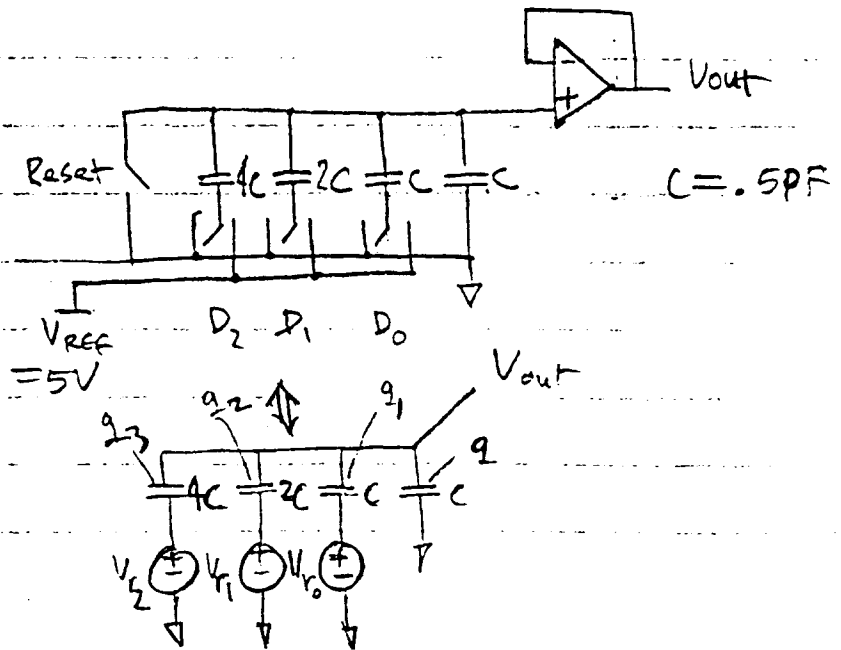 Vout
Reset 4C 2C C C C = .5PF
- +
VREF D2 D1 D0
=5V
Vout
q3 q2 q1 q
4C 2C C C
Vr2 Vr1 Vr0
+ - - + -